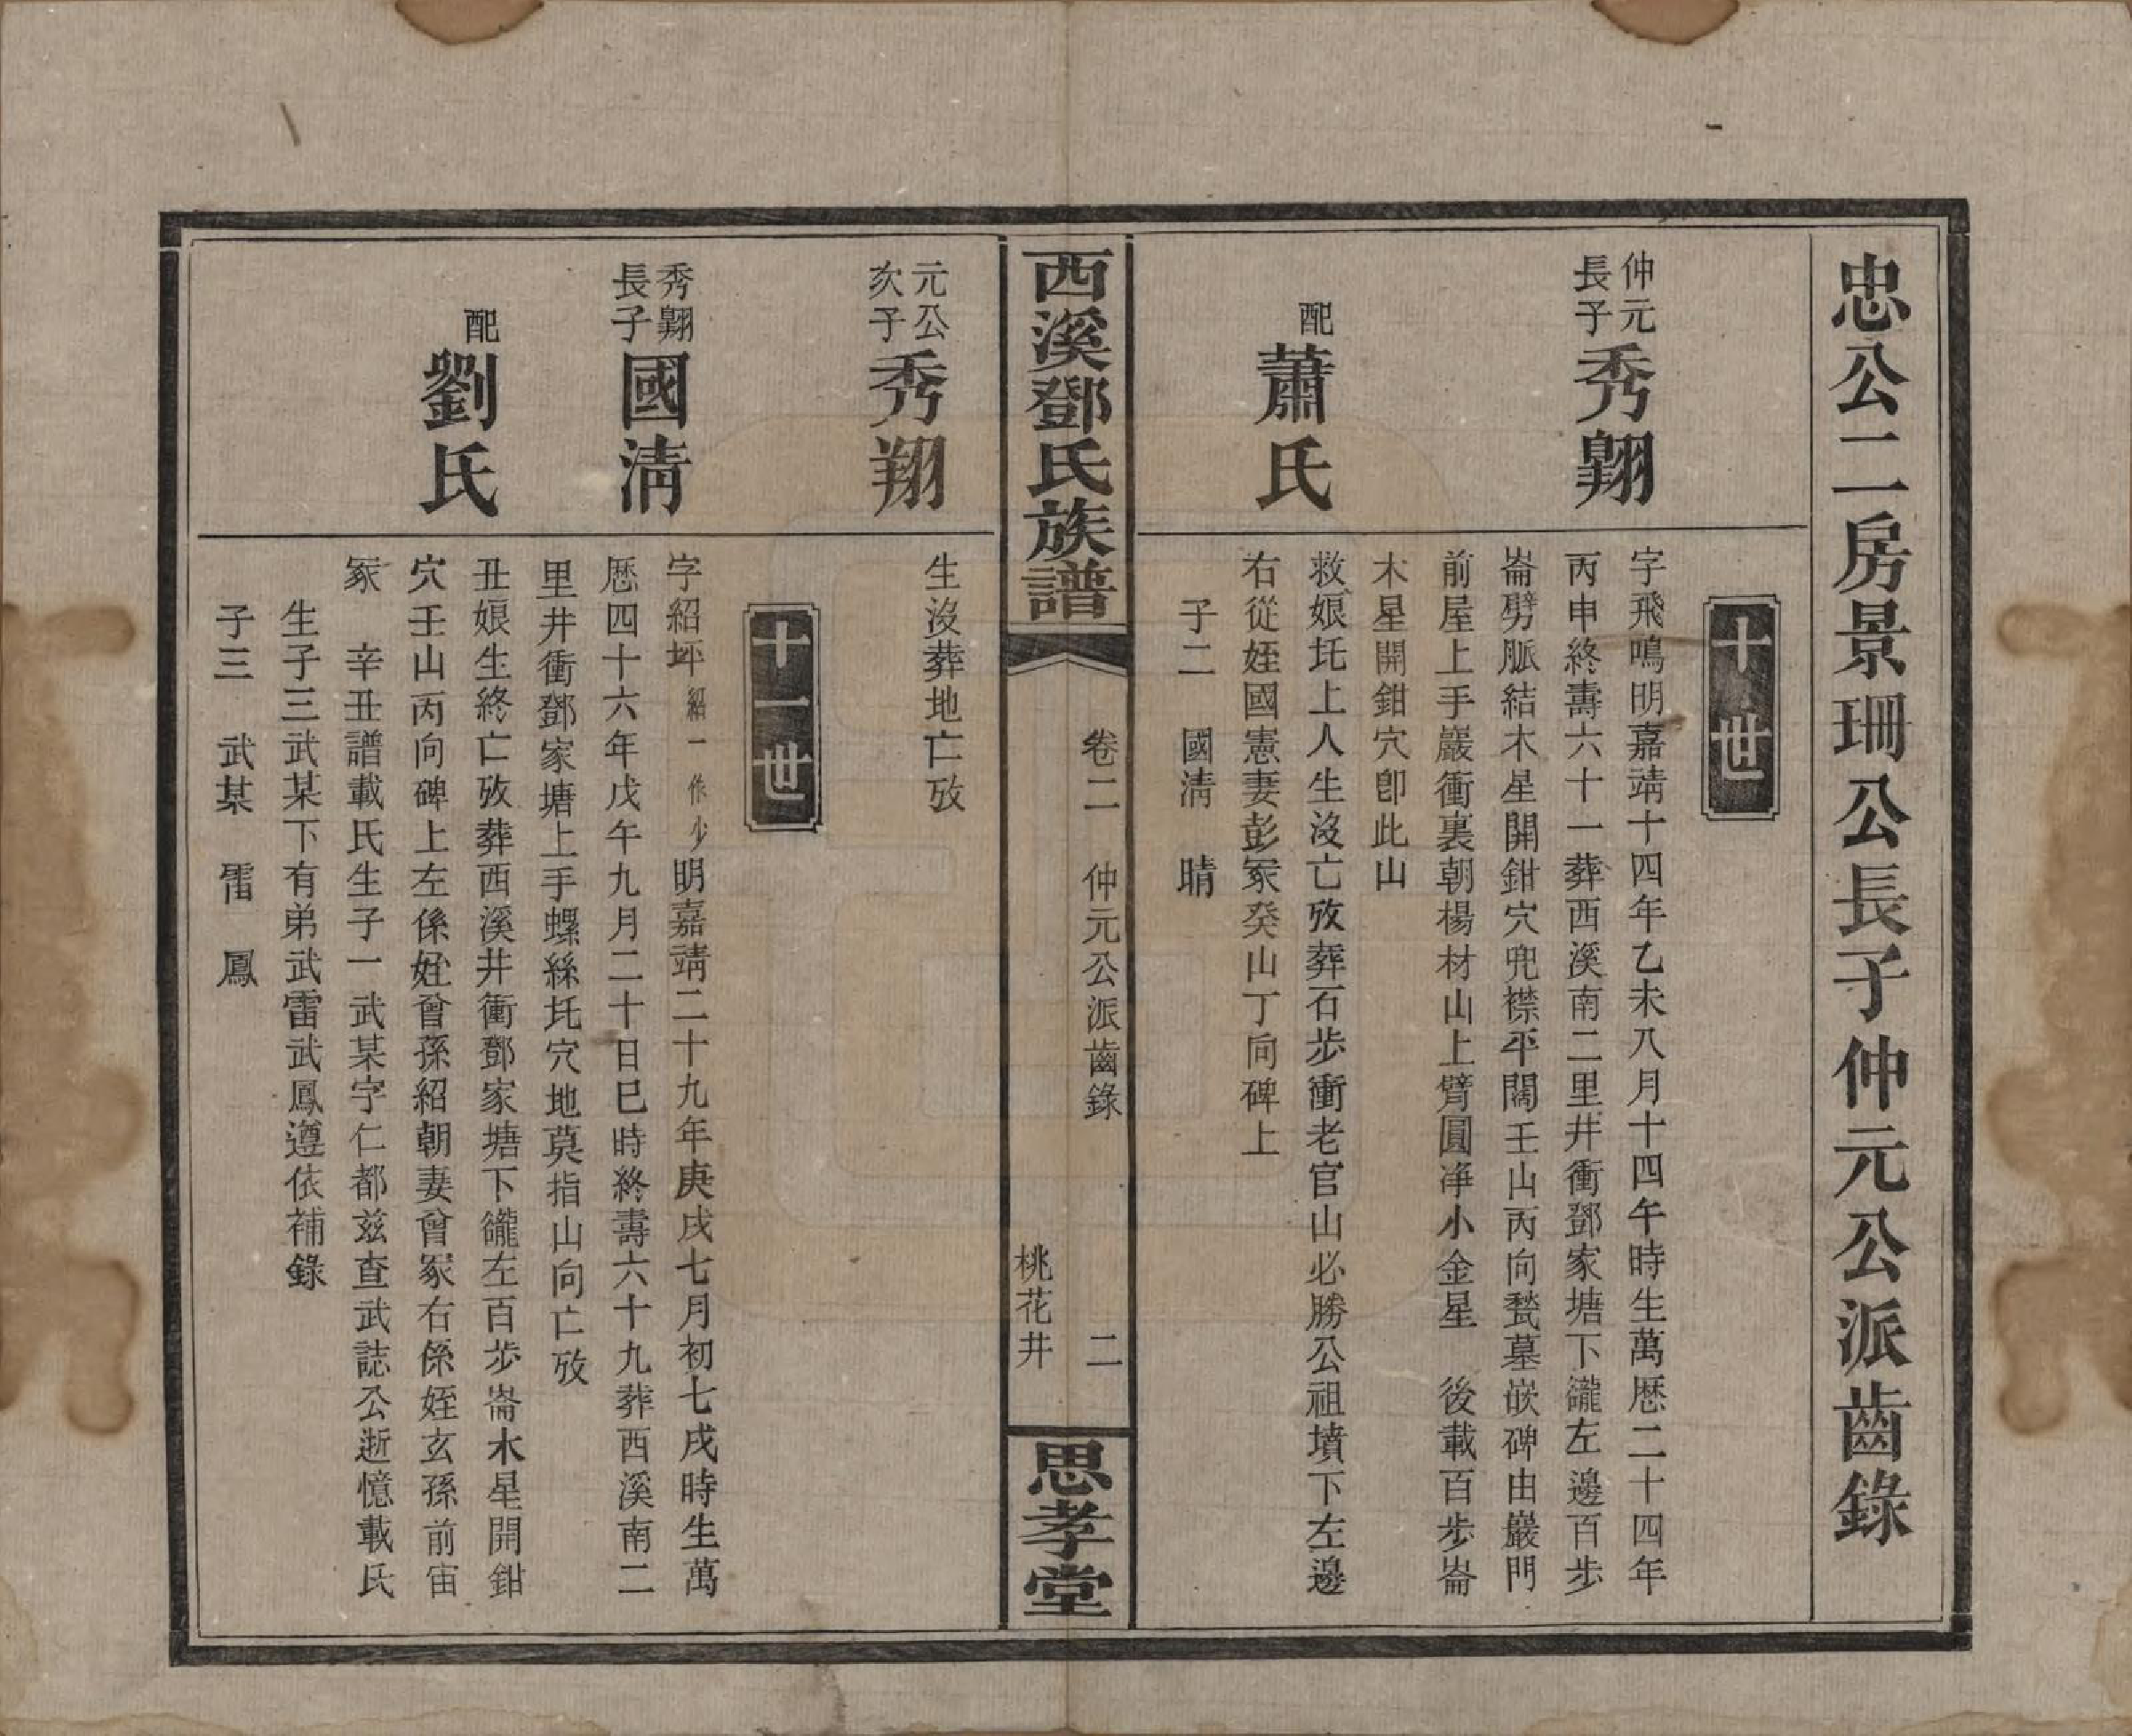 忠公二房景珊公長子仲元公派齒錄
十世
仲元
長子
秀翺
字飛鳴明嘉靖十四年乙未八月十四午時生萬歷二十四年
丙申終壽六十一葬西溪南二里井衝鄧家塘下巃左邊百步
崙劈脈結木星開鉗穴兜襟平闊壬山丙向甃墓嵌碑由巖門
前屋上手巖衝裏朝楊材山上臂圓淨小金星　後載百步崙
木星開鉗穴卽此山
配
蕭氏
救娘圫上人生沒亡攷葬石步衝老官山必勝公祖墳下左邊
右從姪國憲妻彭冢癸山丁向碑上
子二　國清　晴
西溪鄧氏族譜
卷二　仲元公派齒錄　二
桃花井
思孝堂
元公
次子
秀翔
生沒葬地亡攷
十一世
秀翺
長子
國淸
字紹坪紹一作少明嘉靖二十九年庚戌七月初七戌時生萬
歷四十六年戊午九月二十日巳時終壽六十九葬西溪南二
里井衝鄧家塘上手螺絲圫穴地莫指山向亡攷
配
劉氏
丑娘生終亡攷葬西溪井衝鄧家塘下巃左百步崙木星開鉗
穴壬山丙向碑上左係姪曾孫紹朝妻曾冢右係姪玄孫前宙
冢　辛丑譜載氏生子一武某字仁都兹查武誌公逝憶載氏
生子三武某下有弟武雷武鳳遵依補錄
子三　武某　雷　鳳